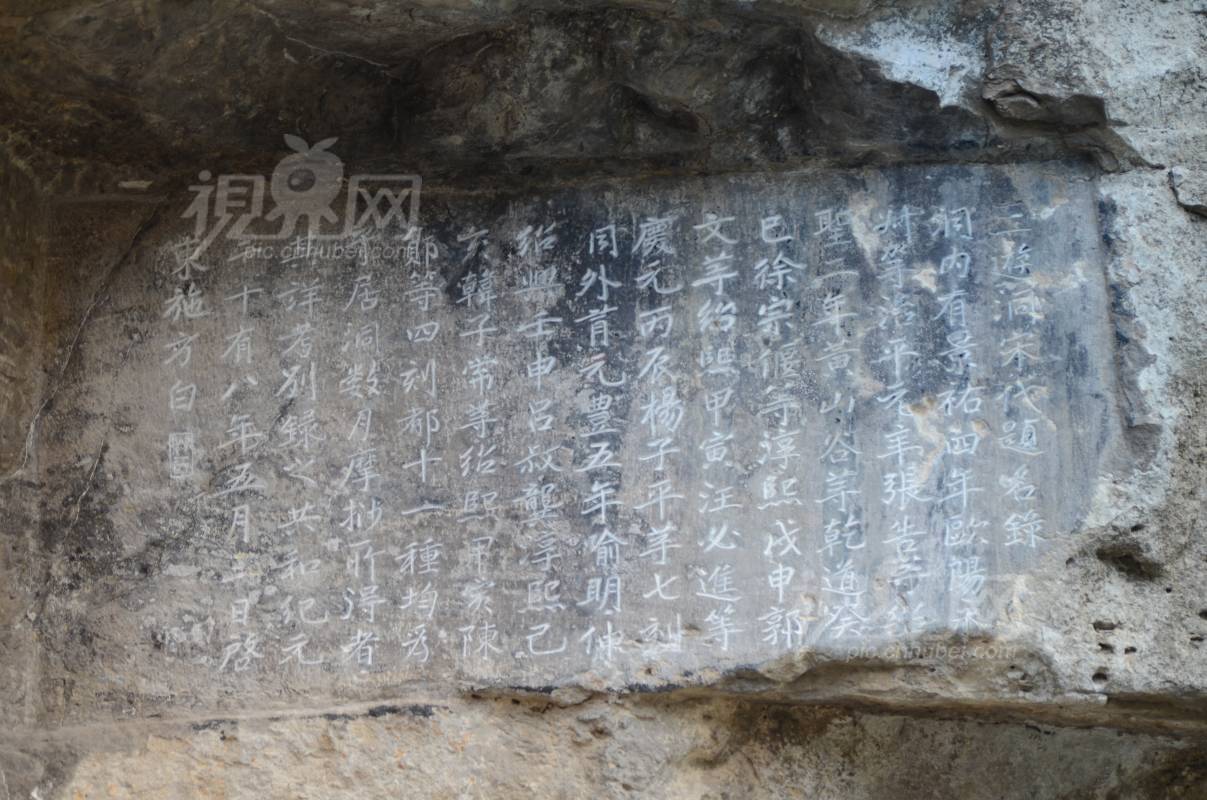 三游洞宋代題名錄
洞內有景祐四年歐陽永
叔等治平元年張告等紹
聖二年黄山谷等乾道癸
巳徐宗偃等淳熙戊申郭
文等紹熙甲寅汪必進等
慶元丙辰楊子平等七刻
同外首元豊五年喻明仲
紹興壬申呂叔龔淳熙己
亥韓子常等紹熙甲寅陳
郧等四刻都十一種均爲
居洞數月摩抄所得者
詳考别錄之共和紀元
二十有八年五月三日啓
東施方白
視界网
pic.cnhubei.com
pic.cnhubei.com